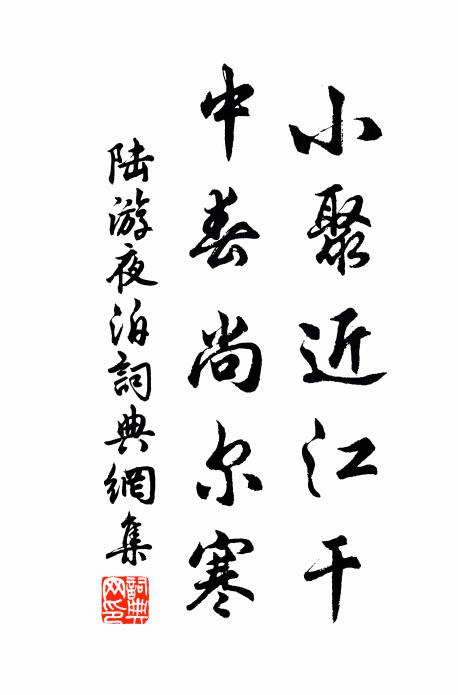 小聚近江干
中春尚尔寒
陆游夜泊詞典網集
詞典网印